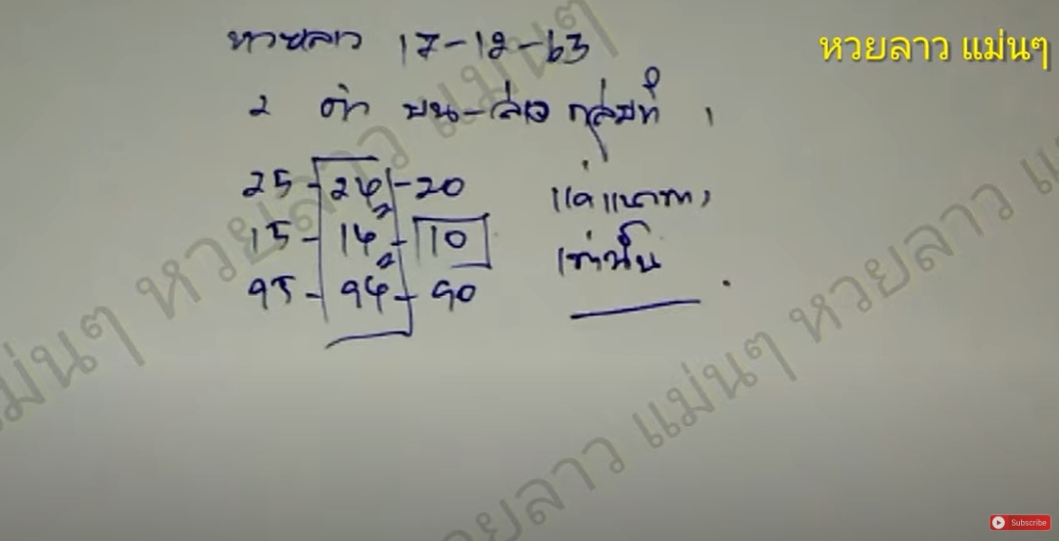 หวยลาว 17-12-63
หวยลาว แม่นๆ
2 ตัว บน-ล่าง กลุ่มที่ 1
25-24-20
15-14-10
95-94-90
แค่แนวทาง
เท่านั้น
แม่นๆ หวยลาว แม่นๆ
หวยลาว แม่นๆ หวยลาว แม่นๆ
Subscribe